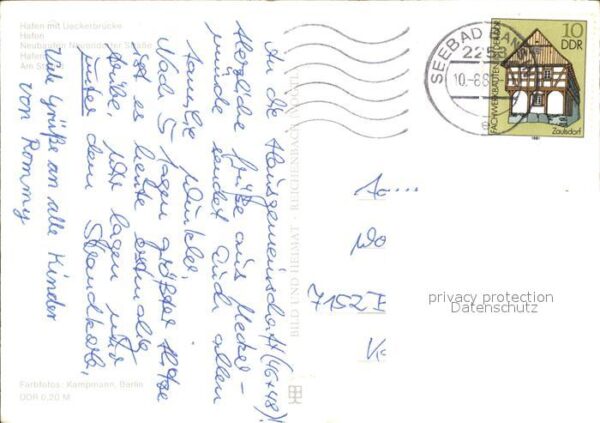 Hafen mit Ueckerbrücke
Hafen
Neubauten Neuendorfer Straße
Hafen
Am St
An die Hausgemeinschaft (46+48)!
Herzliche Grüße aus Uecker-
münde sendet Euch allen
Familie Dunkler.
Nach 5 Tagen größter Hitze
ist es heute erstmalig
trübe. Wir lagen nur
unter dem Strandkorb.
Viele Grüße an alle Kinder
von Rommy
Farbfotos: Kampmann, Berlin
DDR 0,20 M
BILD UND HEIMAT · REICHENBACH (VOGTL)
SEEBAD
2253
10.-8.8
e
10
DDR
FACHWERKBAUTEN IN DER DDR
Zaulsdorf
1981
7152
privacy protection
Datenschutz